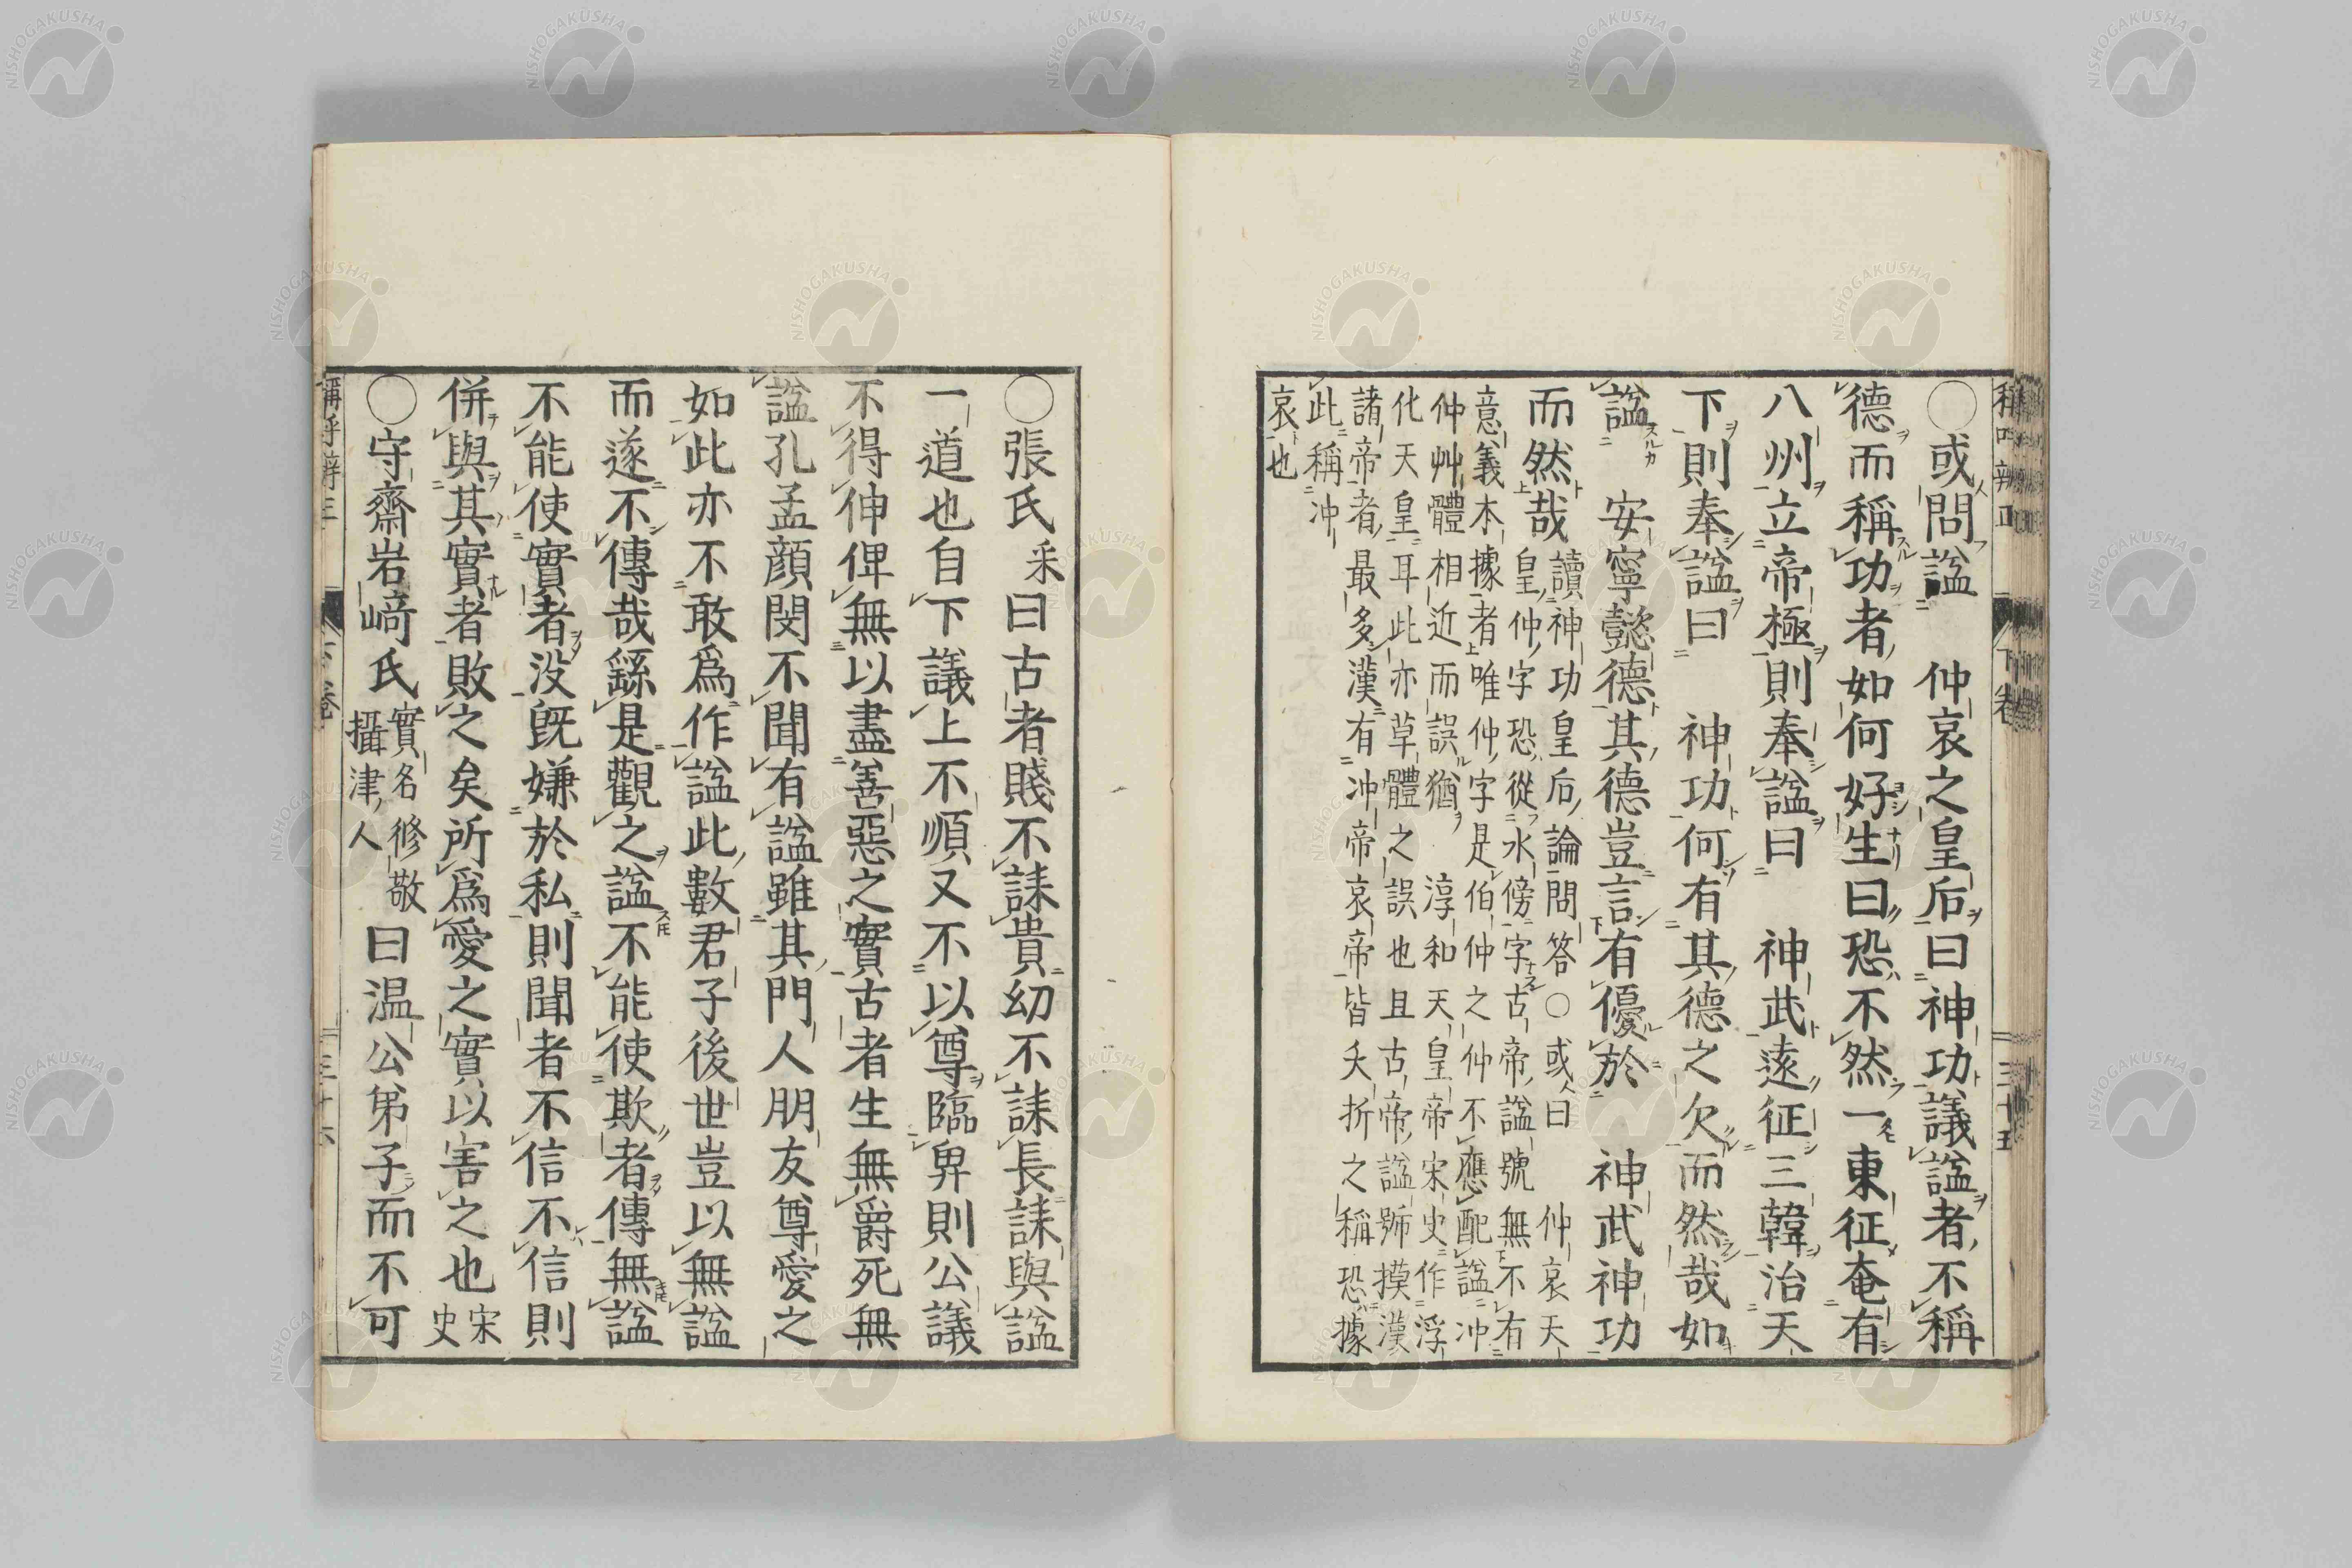 ○或問謚　仲哀之皇后曰神功議謚者不稱
德而稱功者如何好生曰恐不然一東征奄有
八州立帝極則奉謚曰　神武遠征三韓治天
下則奉謚曰　神功何有其德之欠而然哉如
謚　安寧懿德其德豈言有優於　神武神功
而然哉
讀神功皇后論問答○或曰　仲哀天
皇仲字恐從水傍字古帝謚號無不有
意義本據者唯仲字是伯仲之仲不應配謚冲
仲艸體相近而誤猶　淳和天皇帝宋史作浮
化天皇耳此亦草體之誤也且古帝謚號摸漢
諸帝者最多漢有冲帝哀帝皆夭折之稱恐據
此稱冲
哀也
稱呼辨正　下卷　三十五
○張氏釆曰古者賤不誄貴幼不誄長誄與謚
一道也自下議上不順又不以尊臨卑則公議
不得伸俾無以盡善惡之實古者生無爵死無
謚孔孟顏閔不聞有謚雖其門人朋友尊愛之
如此亦不敢爲作謚此數君子後世豈以無謚
而遂不傳哉繇是觀之謚不能使欺者傳無謚
不能使實者没旣嫌於私則聞者不信不信則
併與其實者敗之矣所爲愛之實以害之也宋史
○守齋岩﨑氏實名修敬攝津人曰温公弟子而不可
稱呼辨正　下卷　三十六
NISHOGAKUSHA